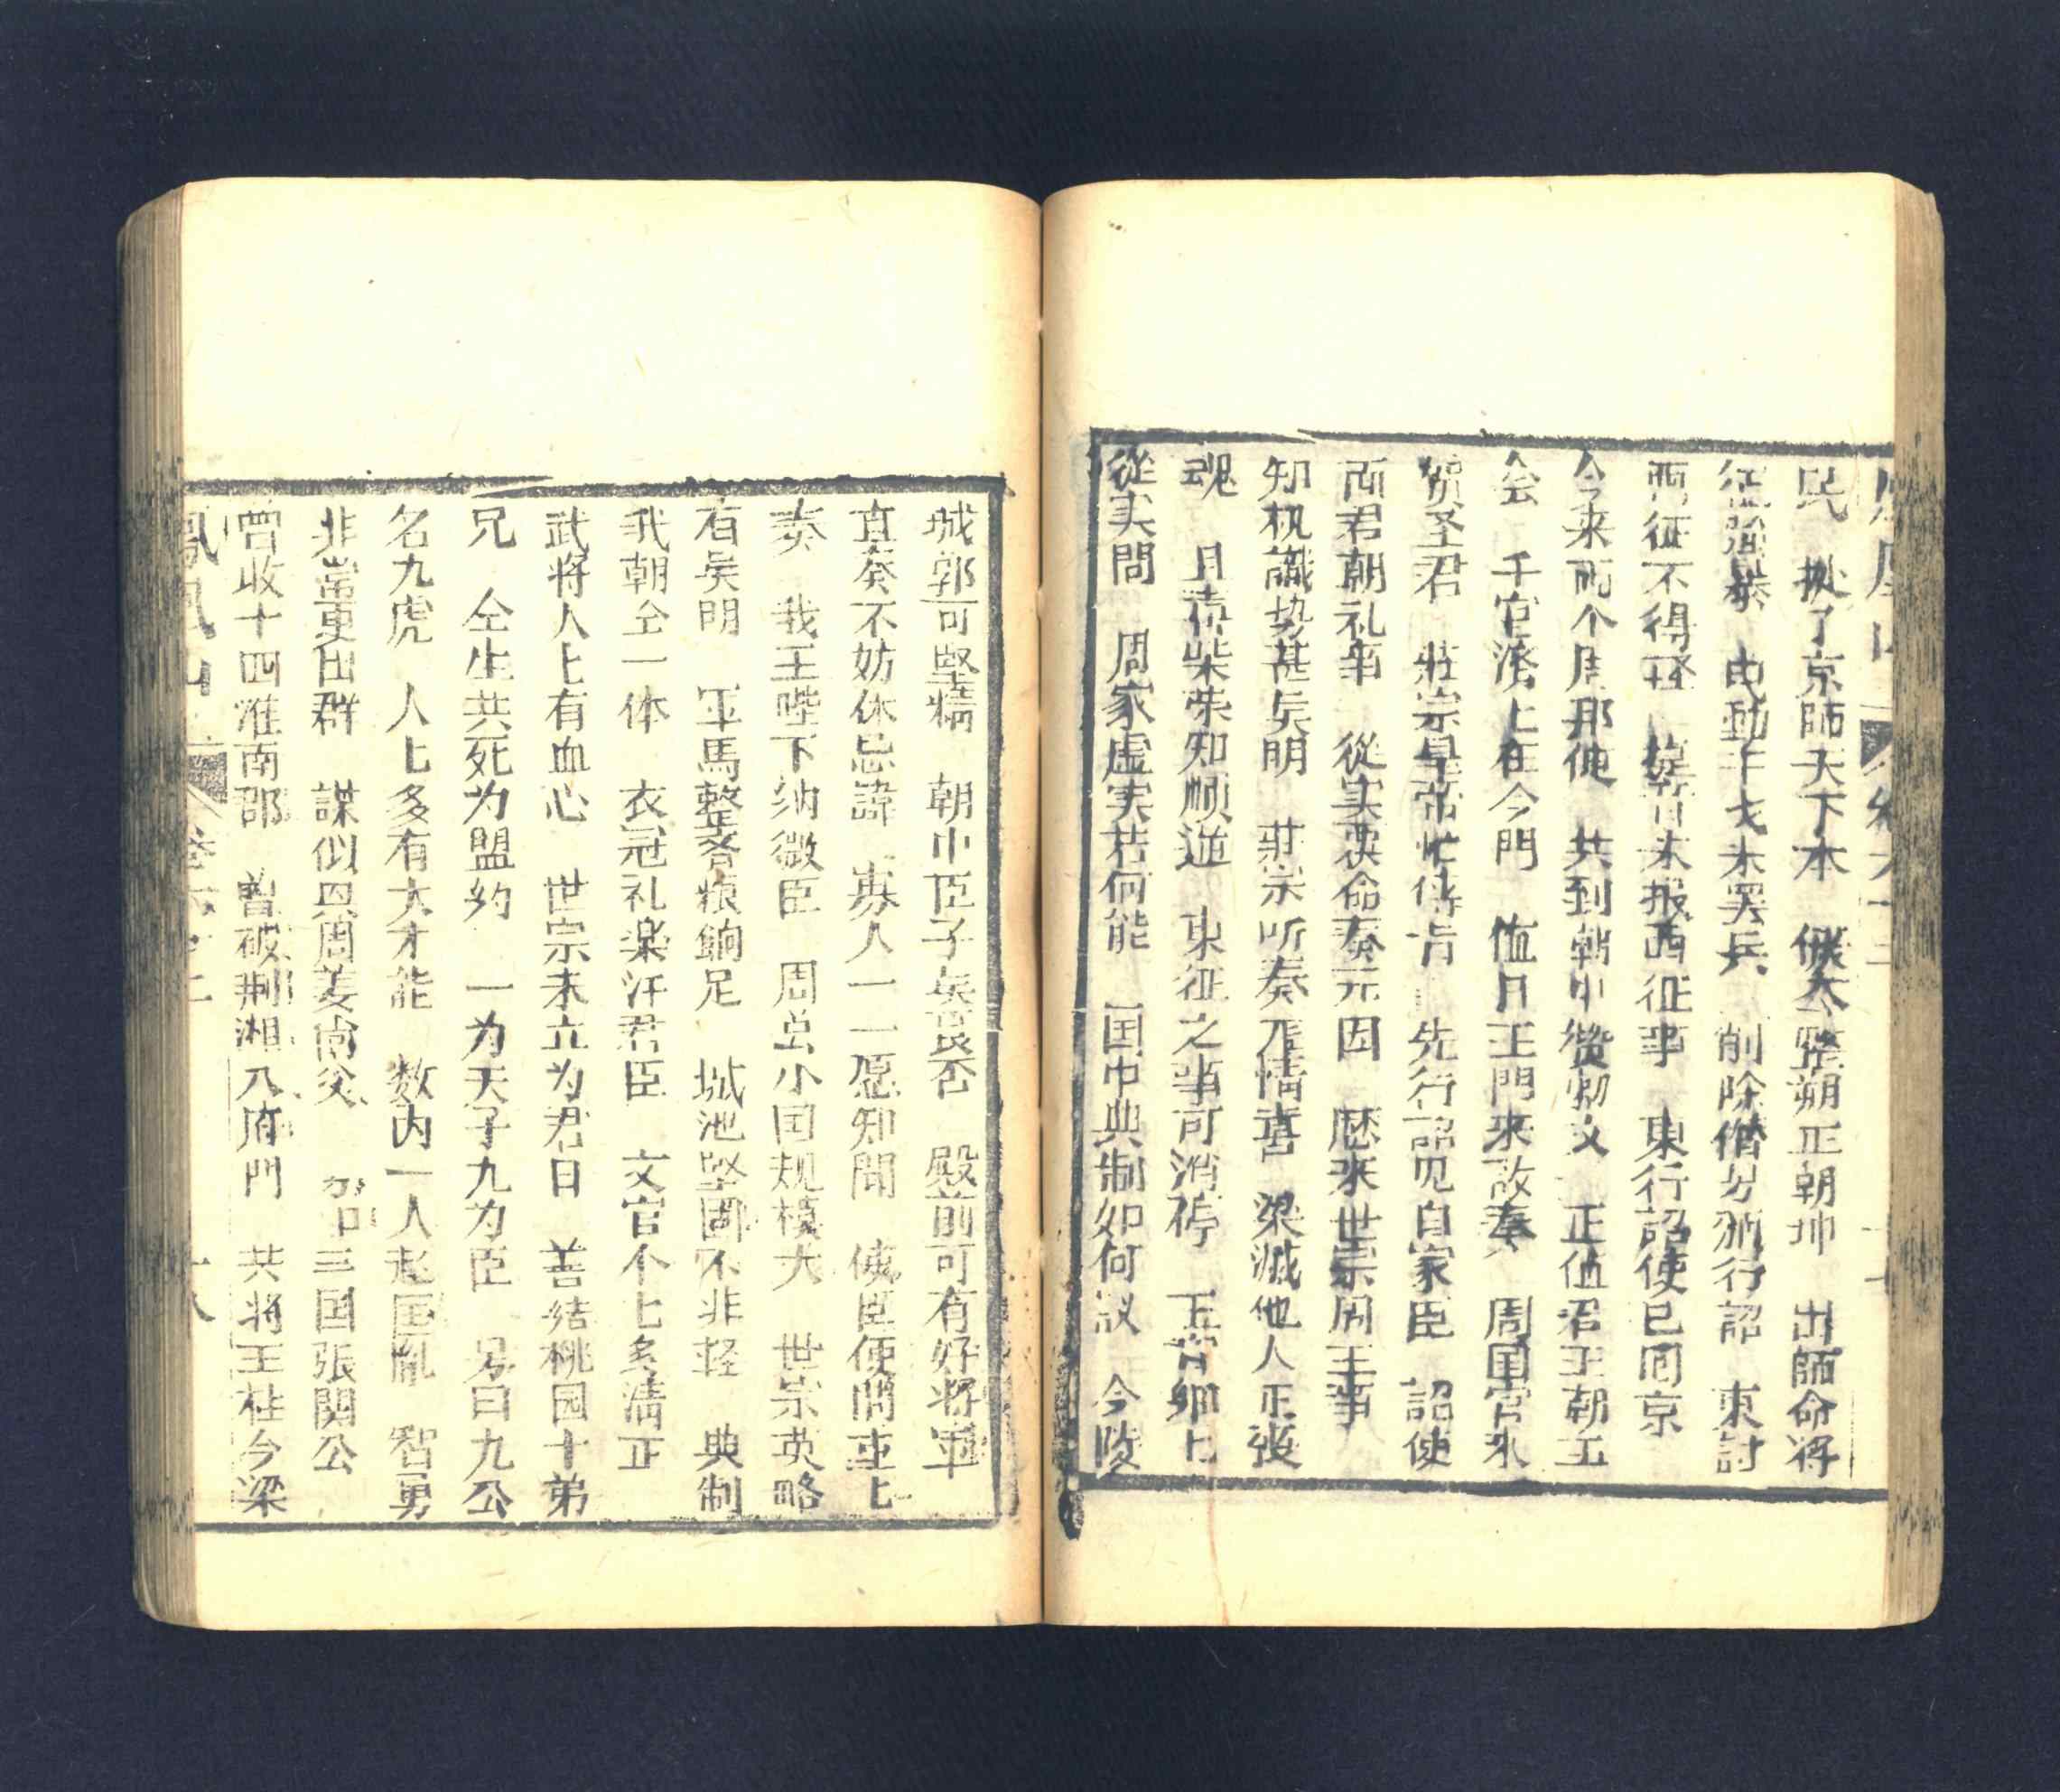 民　撫了京師天下本　候令整朔正朝坤　出師命將
征強暴　由動干戈未罢兵　削除僭号別行詔　東討
西征不得寧　莫言未报西征事　東行詔使已囘京
今来両个周那使　共到朝中賛勅文　正值沼王朝玉
会　千官濟上在今門　值日王門来啟奏　周囯官来
贺圣君　莊宗皇帝忙傳旨　先行詔见自家臣　詔使
面君朝礼毕　從实获命奏元因　歴来世宗周王事
知机識势甚矣明　莊宗听奏龙情喜　梁滅他人正喪
魂　且喜柴荣知順逆　東征之事可消停　下言卿上
從实問　周家虚实若何能　囯中典制如何议　今陵
城郭可堅精　朝中臣子矣良否　殿前可有好将軍
直奏不妨休忌諱　寡人一一愿知聞　使臣便問玊上
奏　我王陛下纳微臣　周虽小囯规模大　世宗英略
有矣明　军馬整齐粮餉足　城池堅固不非轻　典制
我朝仝一体　衣冠礼楽汗君臣　文官个七多清正
武将人上有血心　世宗未立为君日　善结桃园十弟
兄　仝生共死为盟约　一为天子九为臣　号曰九公
名九虎　人七多有大才能　数内一人赵匡胤　智勇
非常更出群　謀似恩周姜尚父　三囯張関公
曾收十四淮南郡　曾破荆湘八府門　共将王柱今梁
鳳凰山　卷六十二　十八